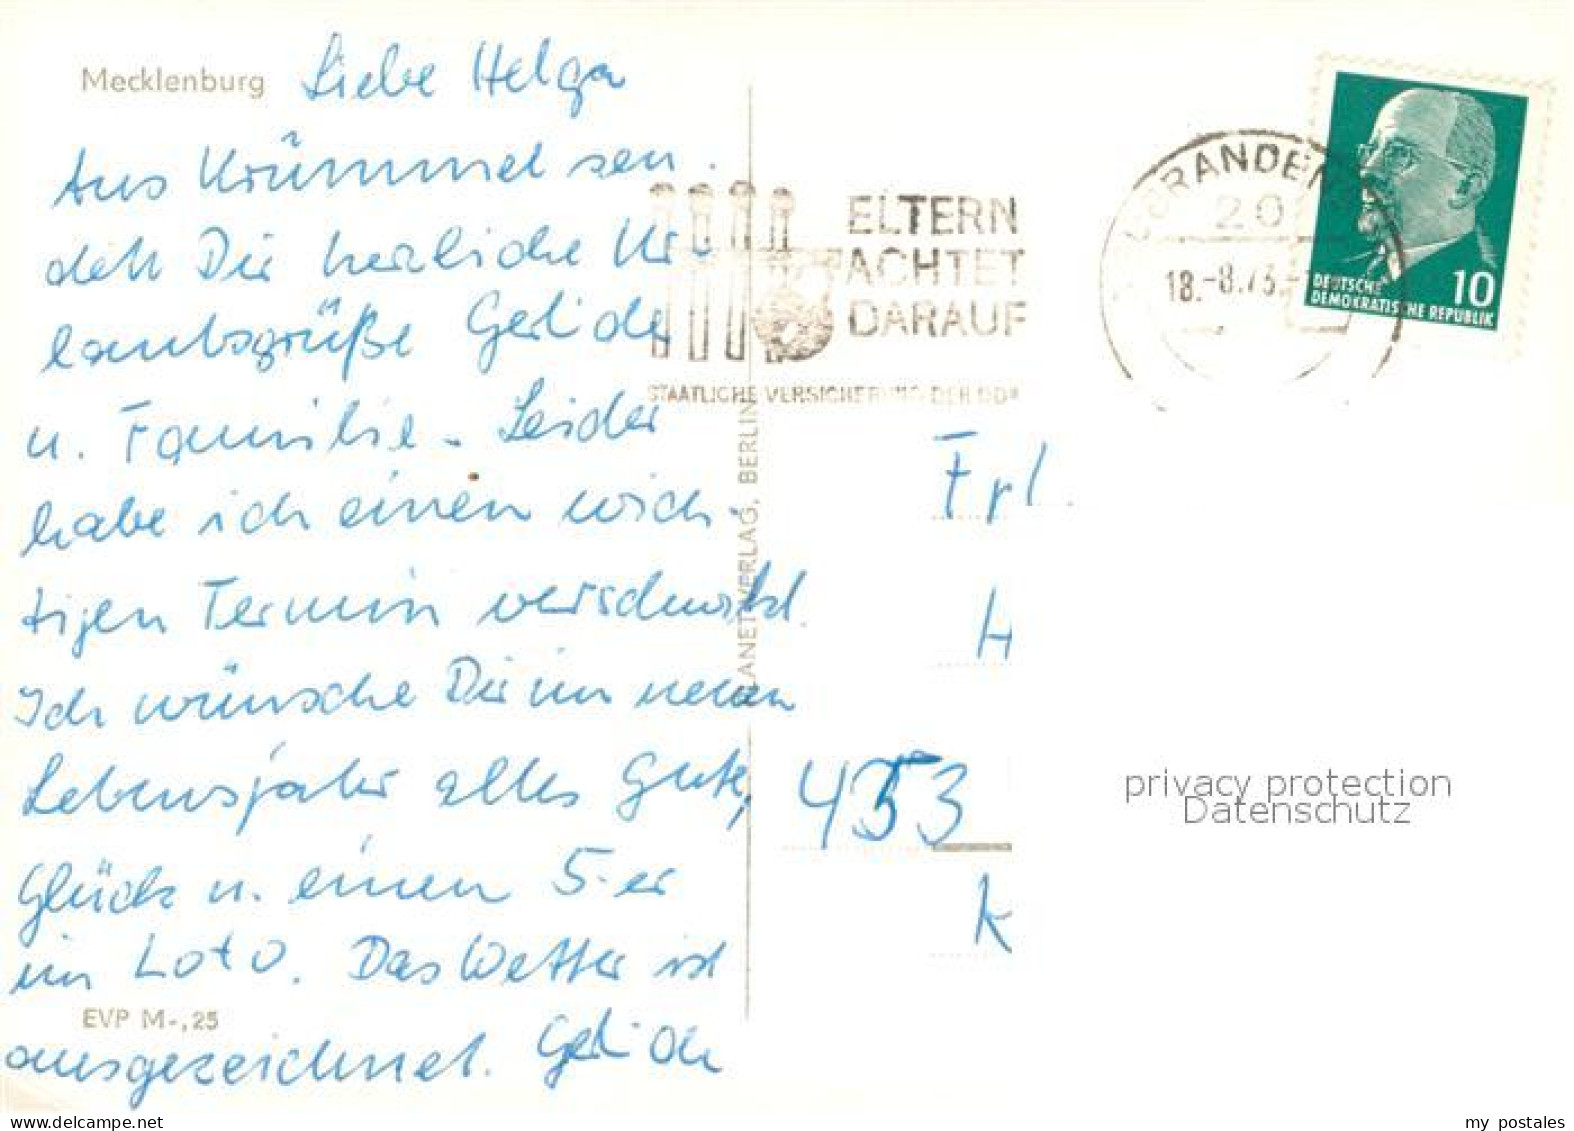 Mecklenburg
Liebe Helga
Aus Krümmel sen
den Dir herzliche Ur-
laubsgrüße
u. Familie. Leider
habe ich einen wich-
tigen Termin verschwitzt.
Ich wünsche Dir im neuen
Lebensjahr alles Gute,
Glück u. einen 5-er
im Loto. Das Wetter ist
EVP M-,25
ausgezeichnet.
PLANET-VERLAG, BERLIN
ELTERN
ACHTET
DARAUF
STAATLICHE VERSICHERUNG DER DDR
BRANDENB
20
18.-8.73.-
DEUTSCHE
DEMOKRATISCHE REPUBLIK
10
Frl.
H
453
K
privacy protection
Datenschutz
my postales